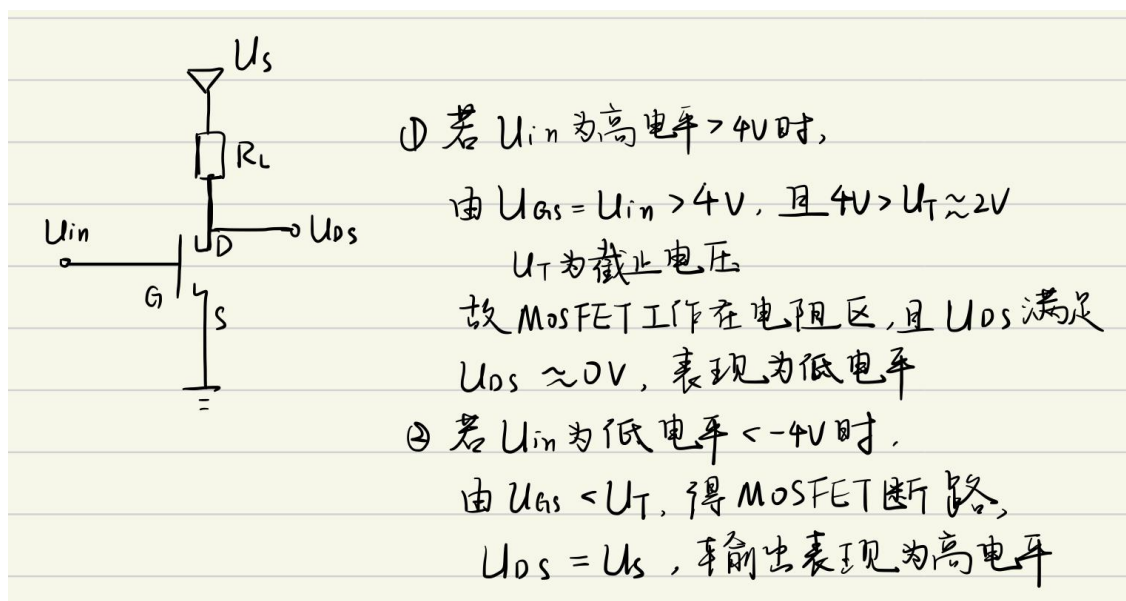 Us
RL
Uin
D
UDs
G
S
① 若 Uin 为高电平 > 4V时,
由 UGs = Uin > 4V, 且 4V > UT ≈ 2V
UT为截止电压
故 MOSFET工作在电阻区,且 UDS 满足
UDS ≈ 0V, 表现为低电平
② 若 Uin 为低电平 < -4V时,
由 UGs < UT, 得 MOSFET断路,
UDS = Us, 输出表现为高电平